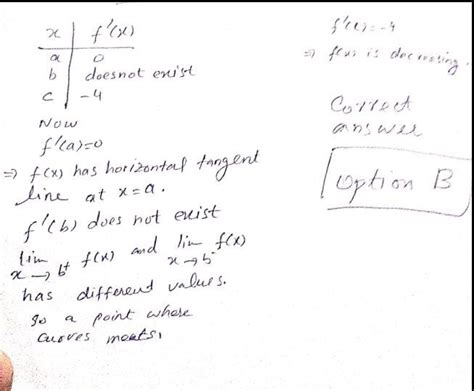 x | f'(x)
a | 0
b | does not exist
c | -4
Now
f'(a)=0
⇒ f(x) has horizontal tangent
line at x=a.
f'(b) does not exist
lim x→b⁺ f(x) and lim x→b⁻ f(x)
has different values.
So a point where
curves meets,
f'(c)=-4
⇒ f(x) is decreasing.
Correct
answer
Option B